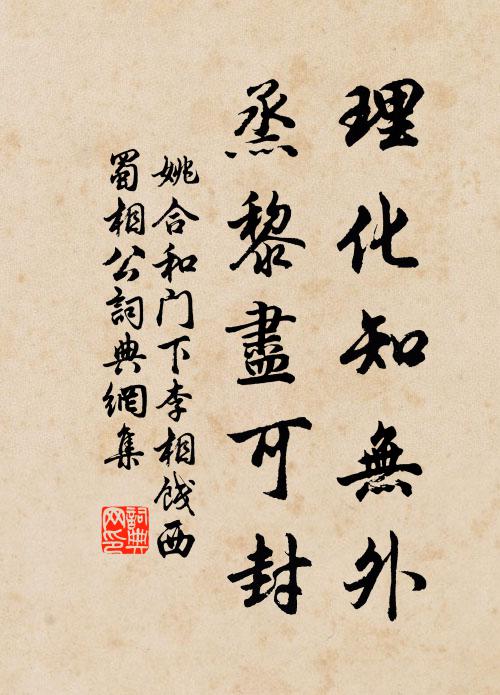 理化知無外
烝黎盡可封
姚合和门下李相饯西
蜀相公詞典網集
詞典
网印